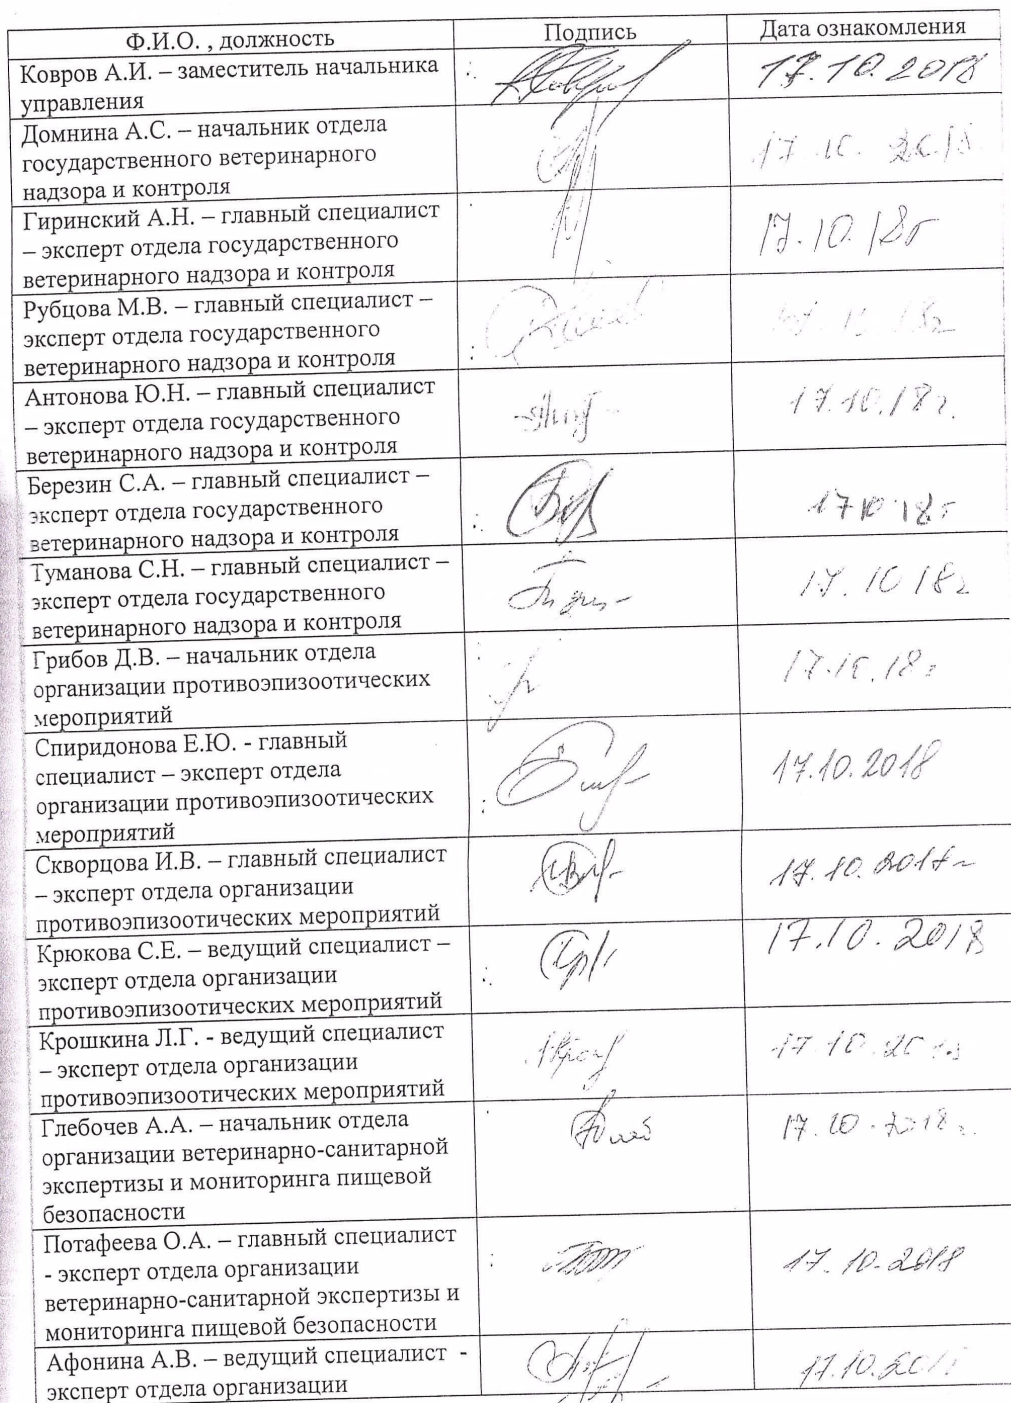 Ф.И.О. , должность Подпись Дата ознакомления
Ковров А.И. – заместитель начальника
управления
17.10.2018
Домнина А.С. – начальник отдела
государственного ветеринарного
надзора и контроля
17.10.2018
Гиринский А.Н. – главный специалист
– эксперт отдела государственного
ветеринарного надзора и контроля
17.10.18г
Рубцова М.В. – главный специалист –
эксперт отдела государственного
ветеринарного надзора и контроля
Антонова Ю.Н. – главный специалист
– эксперт отдела государственного
ветеринарного надзора и контроля
17.10.18г.
Березин С.А. – главный специалист –
эксперт отдела государственного
ветеринарного надзора и контроля
17 10 18г
Туманова С.Н. – главный специалист –
эксперт отдела государственного
ветеринарного надзора и контроля
17.10 18г
Грибов Д.В. – начальник отдела
организации противоэпизоотических
мероприятий
17.10.18г
Спиридонова Е.Ю. - главный
специалист – эксперт отдела
организации противоэпизоотических
мероприятий
17.10.2018
Скворцова И.В. – главный специалист
– эксперт отдела организации
противоэпизоотических мероприятий
Крюкова С.Е. – ведущий специалист –
эксперт отдела организации
противоэпизоотических мероприятий
17.10.2018
Крошкина Л.Г. - ведущий специалист
– эксперт отдела организации
противоэпизоотических мероприятий
17.10.2018
Глебочев А.А. – начальник отдела
организации ветеринарно-санитарной
экспертизы и мониторинга пищевой
безопасности
17.10.2018г.
Потафеева О.А. – главный специалист
- эксперт отдела организации
ветеринарно-санитарной экспертизы и
мониторинга пищевой безопасности
17.10.2018
Афонина А.В. – ведущий специалист -
эксперт отдела организации